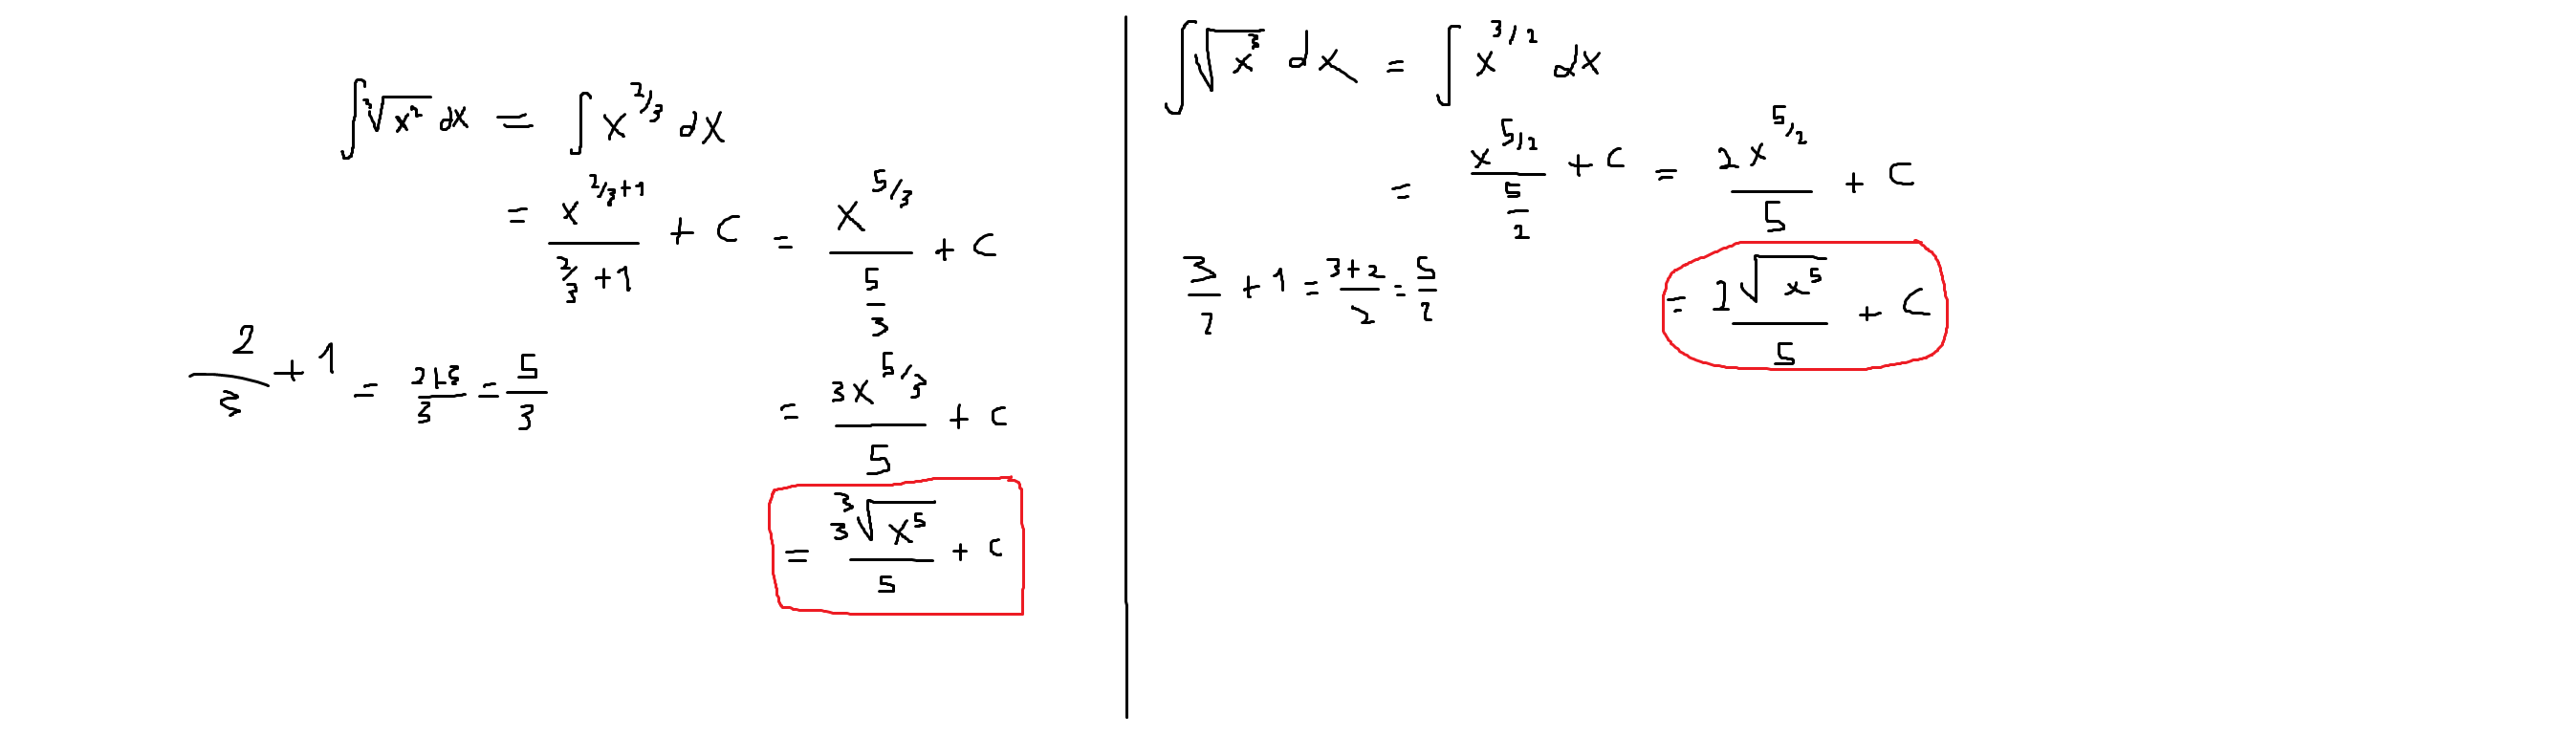 ∫∛(x²) dx = ∫ x^(2/3) dx
= x^(2/3+1) / (2/3 + 1) + C = x^(5/3) / (5/3) + C
2/3 + 1 = (2+3)/3 = 5/3
= 3x^(5/3) / 5 + C
= 3∛(x⁵) / 5 + C
∫√(x³) dx = ∫ x^(3/2) dx
= x^(5/2) / (5/2) + C = 2x^(5/2) / 5 + C
3/2 + 1 = (3+2)/2 = 5/2
= 2√(x⁵) / 5 + C